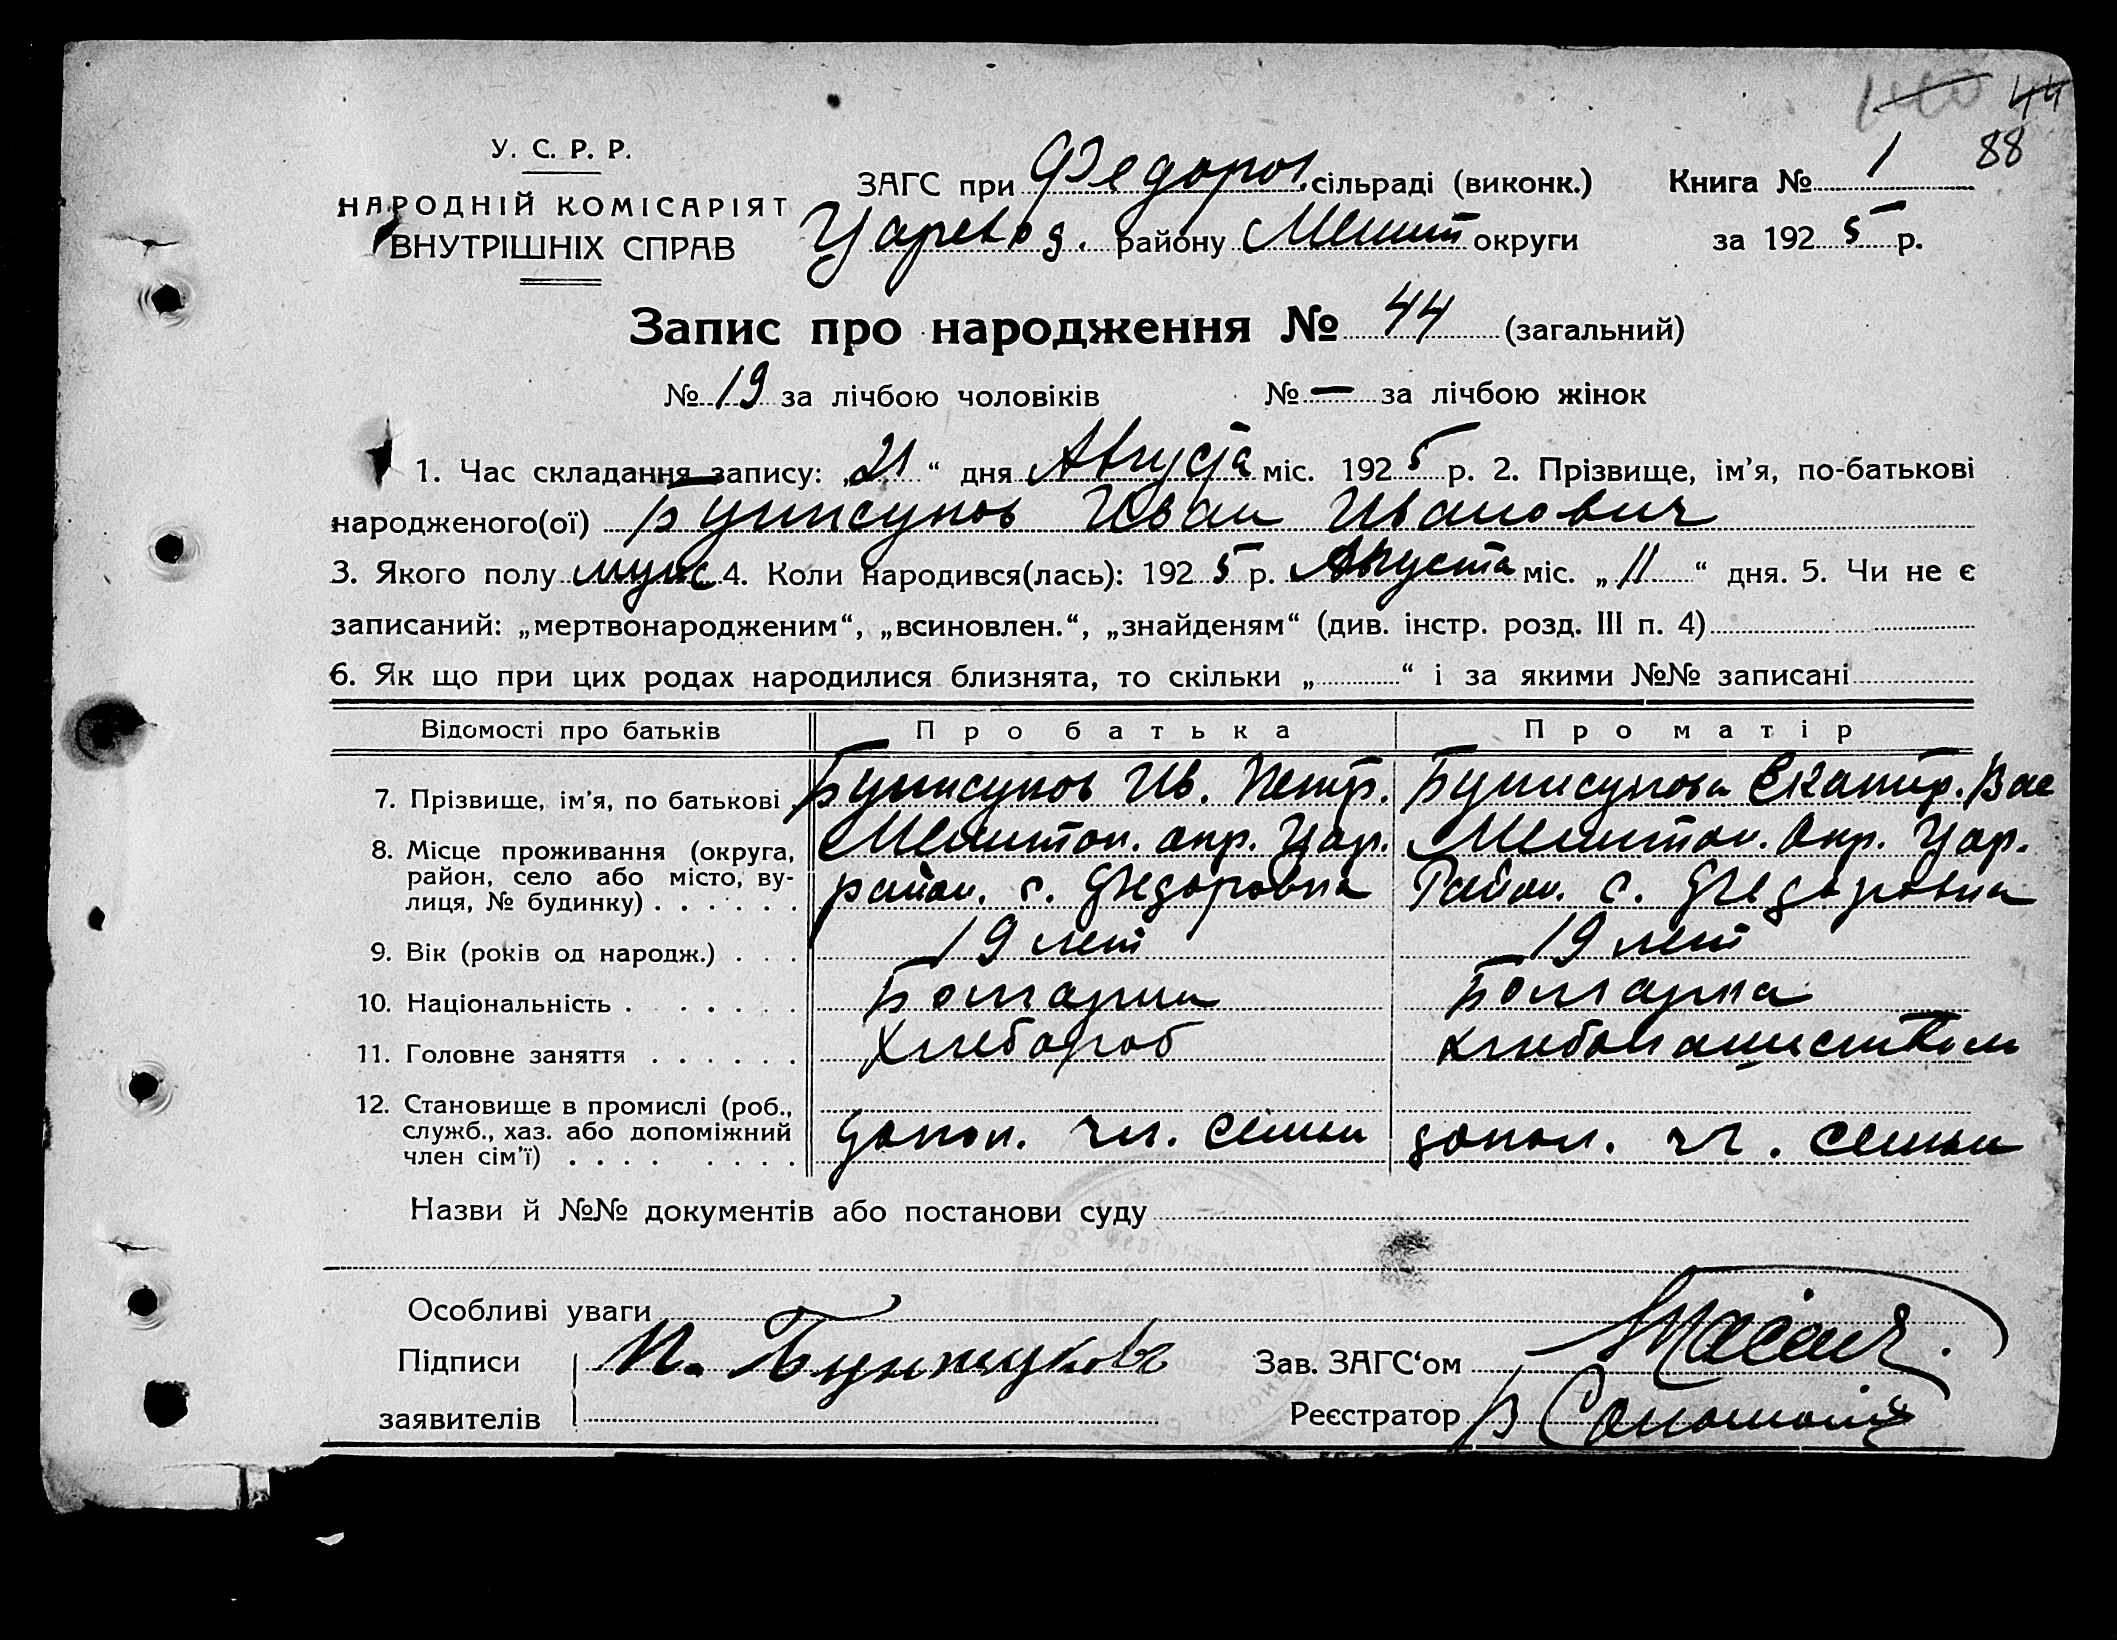 44
88
У. С. Р. Р.
НАРОДНІЙ КОМІСАРІЯТ
ВНУТРІШНІХ СПРАВ
ЗАГС при Федоров. сільраді (виконк.) Книга № 1
Царевод. району Мелит округи за 192 5 р.
Запис про народження № 44 (загальний)
№ 19 за лічбою чоловіків № — за лічбою жінок
1. Час складання запису: „21“ дня Августа міс. 192 5 р. 2. Прізвище, ім’я, по-батькові
народженого(ої) Бунжуков Иван Иванович
3. Якого полу муж 4. Коли народився(лась): 192 5 р. Августа міс. „11“ дня. 5. Чи не є
записаний: „мертвонародженим“, „всиновлен.“, „знайденям“ (див. інстр. розд. III п. 4)
6. Як що при цих родах народилися близнята, то скільки „ “ і за якими №№ записані
Відомості про батьків Про батька Про матір
7. Прізвище, ім’я, по батькові Бунжуков Ив. Петр. Бунжукова Екатер. Вас
8. Місце проживання (округа, Мелитоп. окр. Цар. Мелитоп. окр. Цар.
район, село або місто, ву-
лиця, № будинку) район. с. Федоровка Район. с. Федоровка
9. Вік (років од народж.) 19 лет 19 лет
10. Національність Болгарин Болгарка
11. Головне заняття Хлебороб хлебопашеством
12. Становище в промислі (роб.,
служб., хаз. або допоміжний
член сім’ї) допол. чл. семьи допол. чл. семьи
Назви й №№ документів або постанови суду
Особливі уваги
Підписи И. Бунжуковъ Зав. ЗАГС‘ом
заявителів Реєстратор В